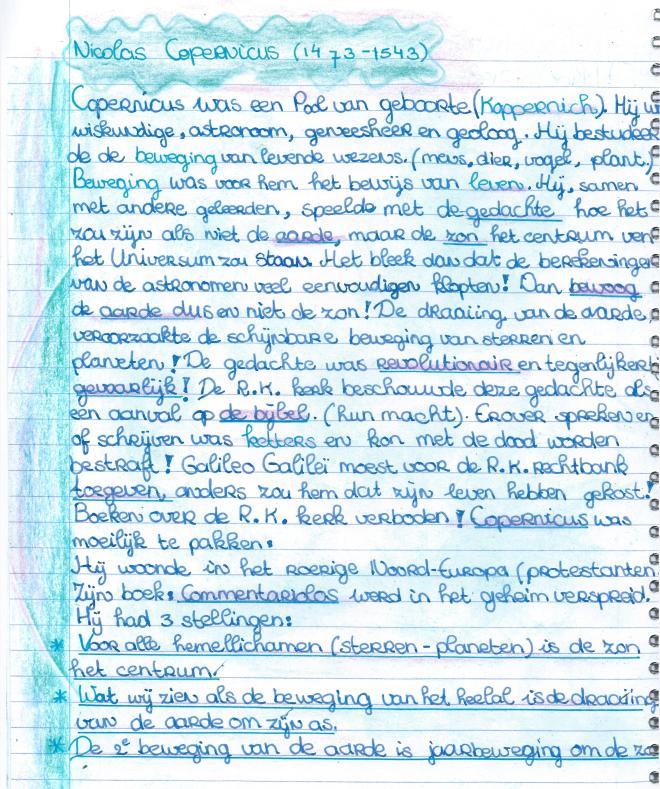 Nicolas Copernicus (1473-1543)
Copernicus was een Pool van geboorte (Koppernich). Hij w
wiskundige, astronoom, geneesheer en geoloog. Hij bestudeer
de de beweging van levende wezens. (mens, dier, vogel, plant.)
Beweging was voor hem het bewijs van leven. Hij, samen
met andere geleerden, speelde met de gedachte hoe het
zou zijn als niet de aarde, maar de zon het centrum van
het Universum zou staan. Het bleek dan dat de berekeningen
van de astronomen veel eenvoudigen klopten! Dan bewoog
de aarde dus en niet de zon! De draaiing van de aarde,
veroorzaakte de schijnbare beweging van sterren en
planeten! De gedachte was revolutionair en tegenlijkert
gevaarlijk! De R.K. kerk beschouwde deze gedachte als
een aanval op de bijbel. (hun macht). Erover spreken en
of schrijven was ketters en kon met de dood worden
bestraft! Galileo Galileï moest voor de R.K. rechtbank
toegeven, anders zou hem dat zijn leven hebben gekost!
Boeken over de R.K. kerk verboden! Copernicus was
moeilijk te pakken:
Hij woonde in het roerige Noord-Europa (protestanten.
Zijn boek: Commentariolas werd in het geheim verspreid.
Hij had 3 stellingen:
* Voor alle hemellichamen (sterren-planeten) is de zon
het centrum.
* Wat wij zien als de beweging van het heelal is de draaiing
van de aarde om zijn as.
* De 2e beweging van de aarde is jaarbeweging om de zo